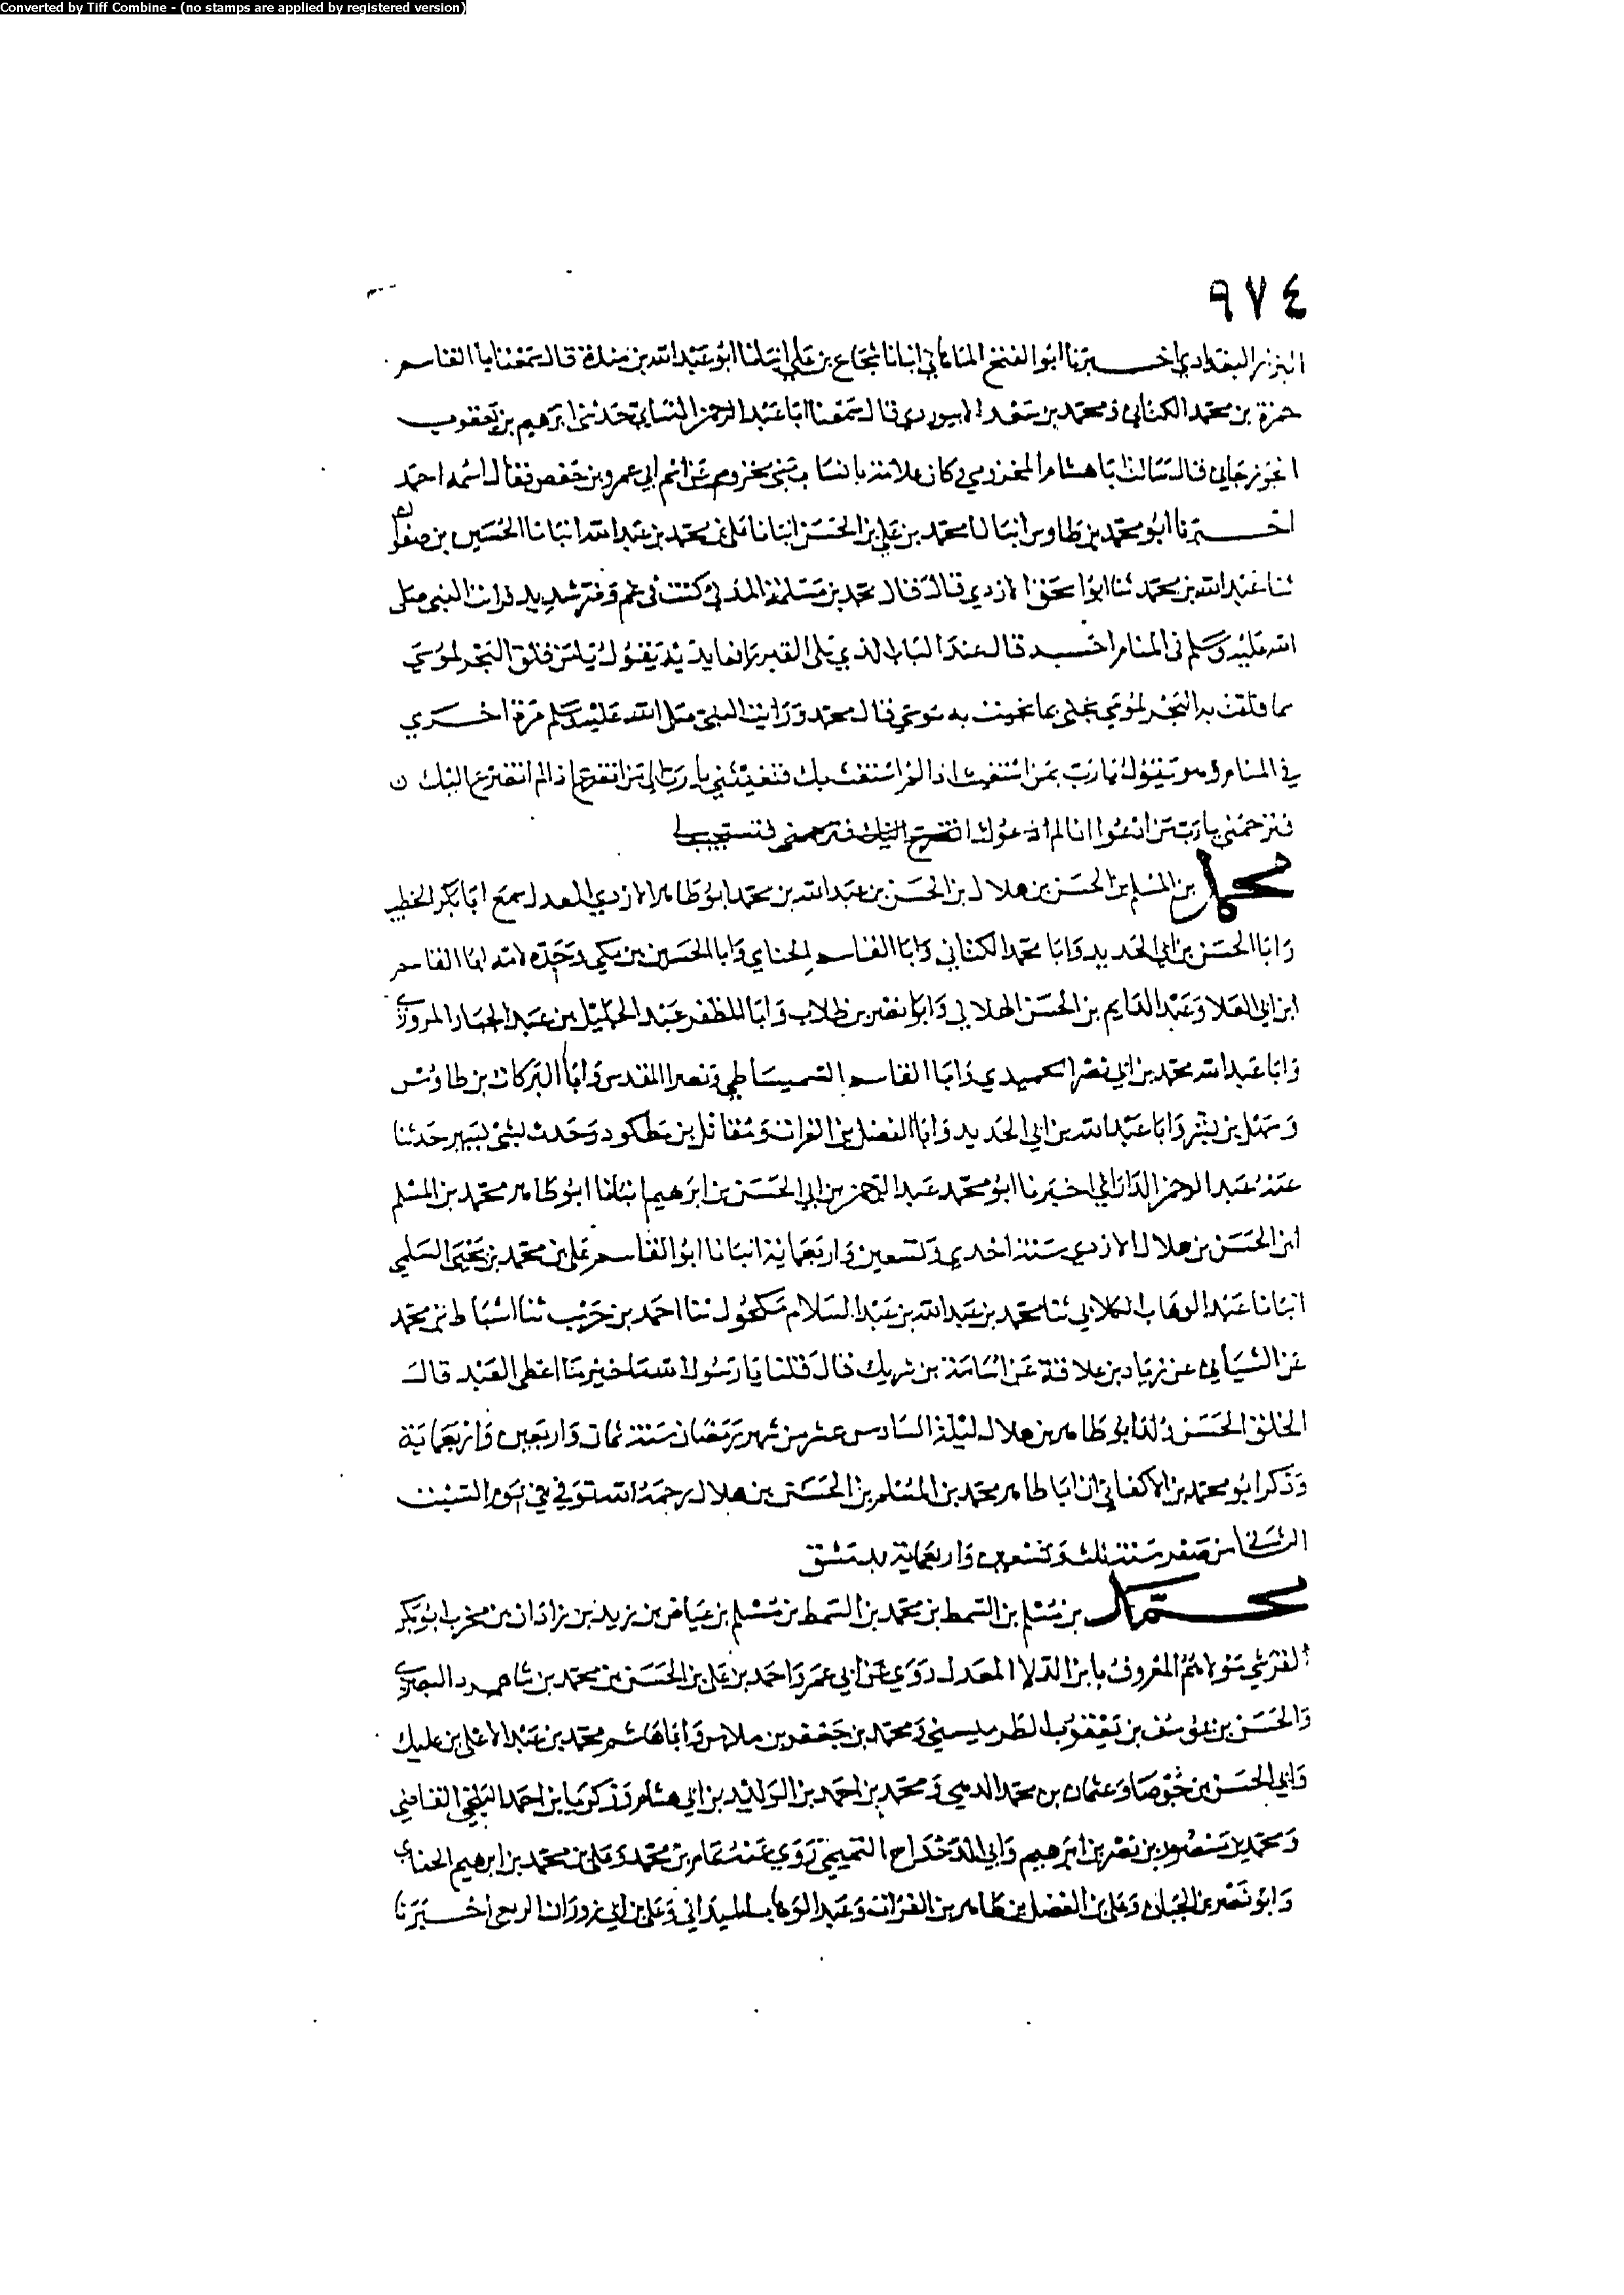 Converted by Tiff Combine - (no stamps are applied by registered version)
٩٧٤
البزار البغدادي اخبرنا ابو الفتح الماهاني انبانا شجاع بن علي انبانا ابو عبد الله بن مندة قال سمعنا ابا القاسم
حمزة بن محمد الكناني ومحمد بن سعد الابيوردي قال سمعنا ابا عبد الرحمن النسائي حدثني ابرهيم بن يعقوب
الجوزجاني قال سالت ابا هشام المخزومي وكان علامة بانساب بني مخزوم عن اسم ابي عمرو بن حفص فقال اسمه احمد
اخبرنا ابو محمد بن طاوس انبانا محمد بن علي بن الحسن انبانا علي بن محمد بن عبد الله انبانا الحسين بن صفوان
ثنا عبد الله بن محمد ثنا ابو اسحق الازدي قال قال محمد بن مسلمة المدني كنت في غم وفتر شديد فرات النبي صلى
الله عليه وسلم في المنام قال عند الباب الذي يلي القبر رافعا يديه يقول فلق البحر لموسى
بما فلقت به البحر لموسى نجني بما نجيت به موسى قال محمد ورايت النبي صلى الله عليه وسلم مرة اخري
في المنام وهو يقول يارب بمن استغيث اذا لم استغث بك فتغيثني يا رب الى من اتضرع اذا لم اتضرع اليك
فترحمني يارب من ادعوا انا لم ادعوك اتضرع اليك فترحمني فتستجيب لي
محمد بن المسلم بن الحسن بن هلال بن الحسن بن عبد الله بن محمد ابو طاهر الازدي المعدل سمع ابا بكر الخطيب
وابا الحسن بن ابي الحديد وابا محمد الكتاني وابا القاسم الحناي وابا الحسين بن مكي وجده لامه ابا القاسم
ابن ابي العلا وعبد الدايم بن الحسن الهلالي وابا نصر بن طلاب وابا المظفر عبد الجليل بن عبد الجبار المروزي
وابا عبد الله محمد بن ابي نصر الحميدي وابا القاسم السميساطي ونصرا المقدسي وابا البركات بن طاوس
وسهل بن بشر وابا عبد الله بن ابي الحديد وابا الفضل بن الفرات ومقاتل بن مطكود وحدث بشئ يسير حدثنا
عنه عبد الرحمن الداراني اخبرنا ابو محمد عبد الرحمن بن ابي الحسن بن ابرهيم انبانا ابو طاهر محمد بن المسلم
ابن الحسن بن هلال الازدي سنة احدي وتسعين واربعماية انبانا ابو القاسم علي بن محمد بن يحيى السلمي
انبانا عبد الوهاب الكلابي ثنا محمد بن عبد الله بن عبد السلام مكحول ثنا احمد بن حرب ثنا اسباط بن محمد
عن الشيباني عن زياد بن علاقة عن اسامة بن شريك قال قلنا يا رسول الله ما خير ما اعطى العبد قال
الخلق الحسن ولد ابو طاهر بن هلال ليلة السادس عشر من شهر رمضان سنة ثمان واربعين واربعماية
وذكر ابو محمد بن الاكفاني ان ابا طاهر محمد بن المسلم بن الحسن بن هلال رحمه الله توفي في يوم السبت
الثاني من صفر سنة ثلث وتسعين واربعماية بدمشق
محمد بن مسلم بن السمط بن محمد بن السمط بن مسلم بن عياض بن يزيد بن زاذان بن مخرب ابو بكر
القرشي مولاهم المعروف بابن الدلا المعدل روي عن ابي عمر واحمد بن علي بن الحسن بن محمد بن شاهمرد البصري
والحسن بن يوسف بن يعقوب الطرميسي ومحمد بن جعفر بن ملاس وابا هاشم محمد بن عبد الاعلى بن عليك
وابي الحسن بن جوصا وعثمان بن محمد الذهبي ومحمد بن احمد بن الوليد بن ابي هشام وزكريا بن احمد البلخي القاضي
ومحمد بن منصور بن نصر بن ابرهيم وابي الدحداح التميمي روي عنه تمام بن محمد وعلي بن محمد بن ابرهيم الحنائي
وابو نصر بن الجبان وعلي بن الفضل بن طاهر بن الفرات وعبد الوهاب الميداني وعلي بن الربعي اخبرنا